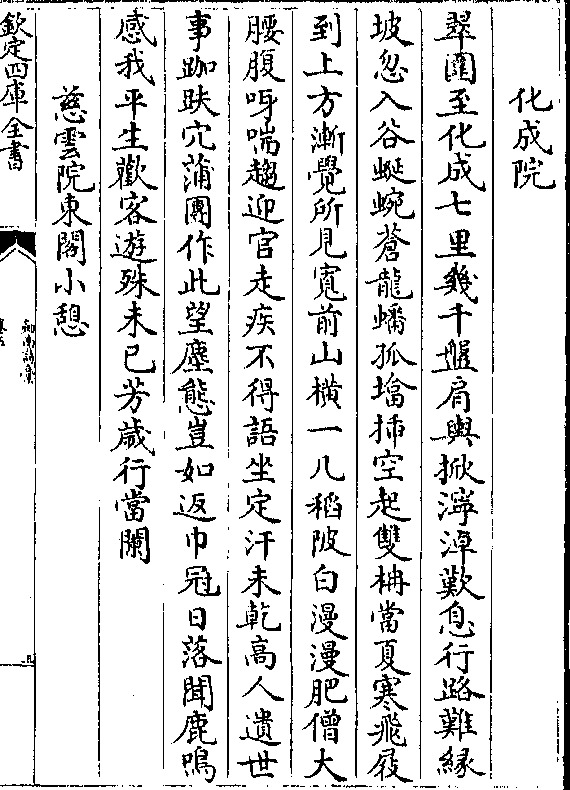 化成院
翠圍至化成七里幾千盤肩輿掀濘淖歎息行路難緣
坡忽入谷蜒蜿蒼龍蟠孤墖揷空起雙栴當夏寒飛屐
到上方漸覺所見寬前山橫一几稻陂白漫漫肥僧大
腰腹呀喘趨迎官走疾不得語坐定汗未乾高人遺世
事跏趺穴蒲團作此望塵態豈如返巾冠日落聞鹿鳴
感我平生歡客遊殊未已芳歲行當闌
慈雲院東閣小憩
欽定四庫全書